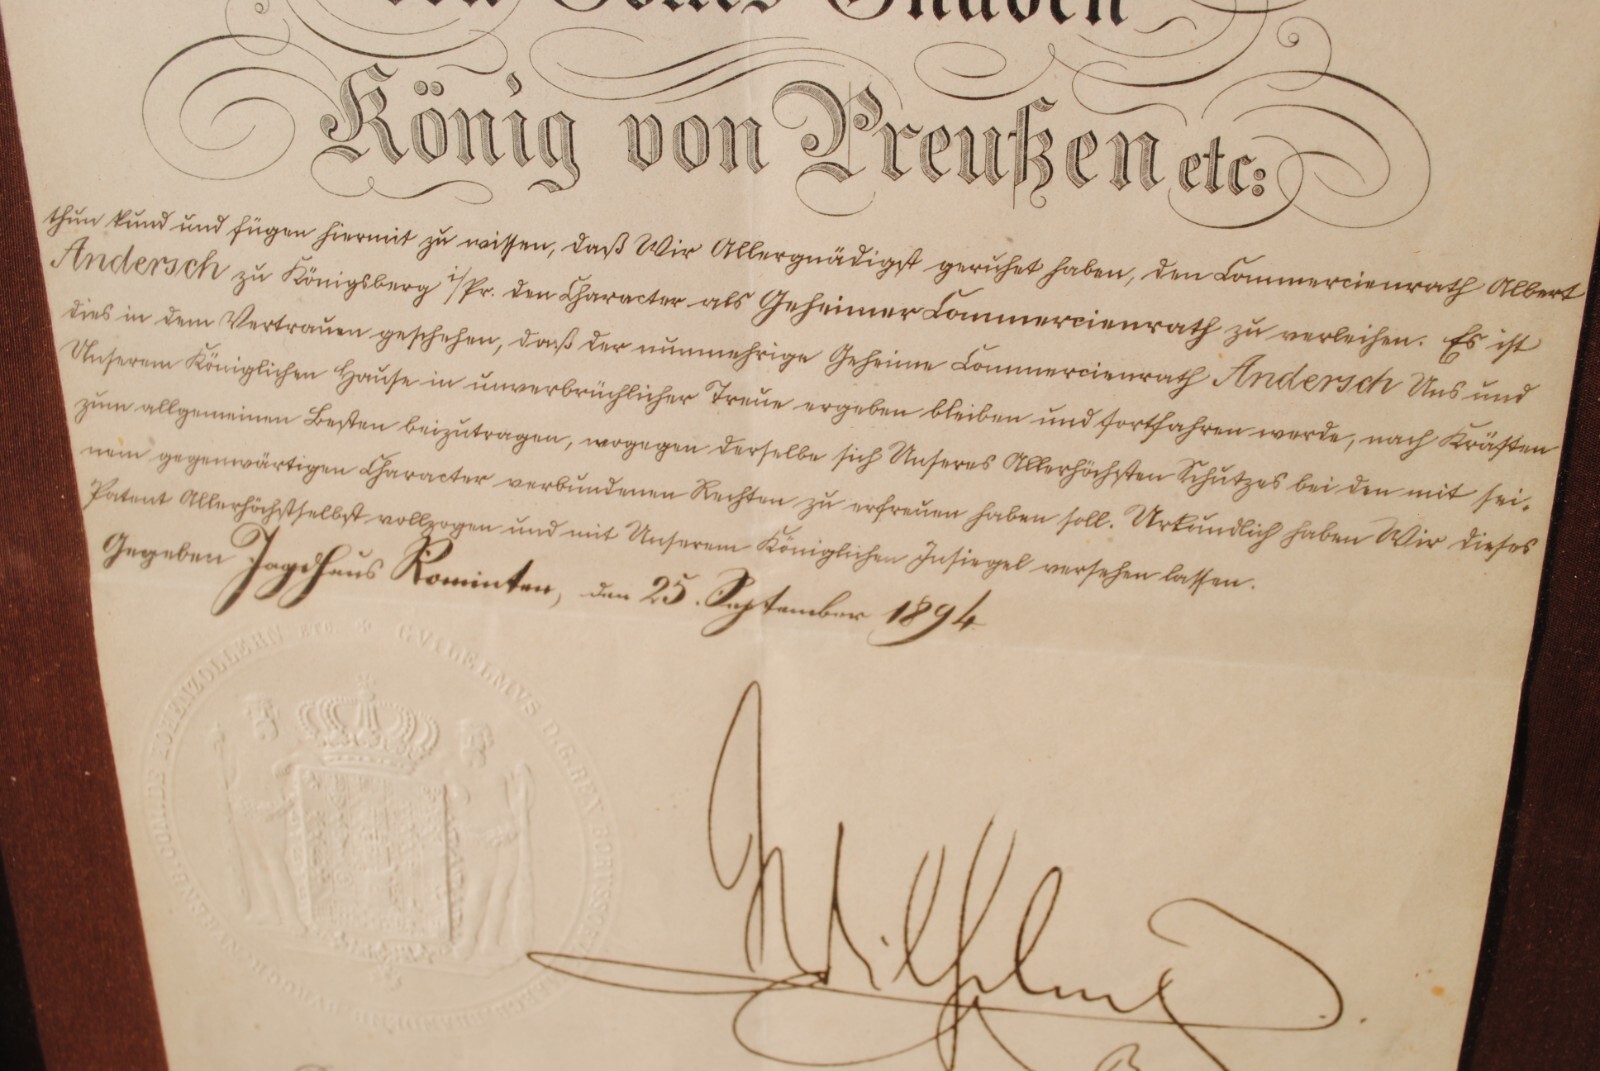 von Gottes Gnaden
König von Preußen etc:
thun kund und fügen hiermit zu wissen, daß Wir Allergnädigst geruhet haben, den Commercienrath Albert
Andersch zu Königsberg i/Pr. den Character als Geheimer Commercienrath zu verleihen. Es ist
dies in dem Vertrauen geschehen, daß der nunmehrige Geheime Commercienrath Andersch Uns und
Unserem Königlichen Hause in unverbrüchlicher Treue ergeben bleiben und fortfahren werde, nach Kräften
zum allgemeinen Besten beizutragen, wogegen derselbe sich Unseres Allerhöchsten Schutzes bei den mit sei-
nem gegenwärtigen Character verbundenen Rechten zu erfreuen haben soll. Urkundlich haben Wir dieses
Patent Allerhöchstselbst vollzogen und mit Unserem Königlichen Insiegel versehen lassen.
Gegeben Jagdhaus Rominten, den 25. September 1894
GVILELMVS D.G. REX BORVSSORVM
HOHENZOLLERN ETC.
Wilhelm